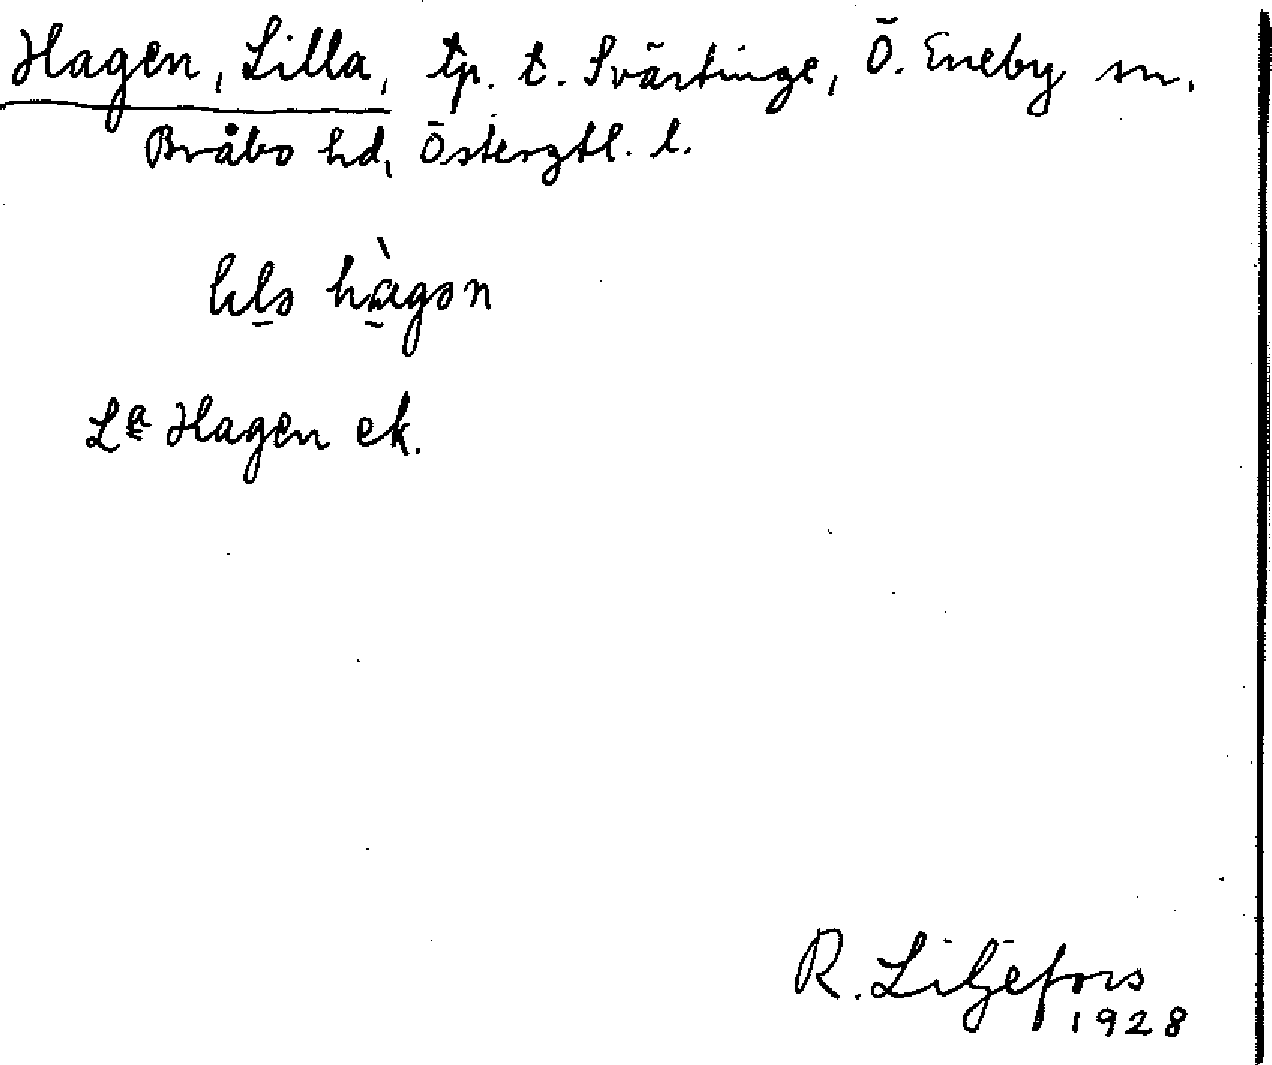 Hagen, Lilla, tp. t. Svärtinge, Ö. Eneby sn.
Bråbo hd, Östergtl. l.
lilə hàgən
La Hagen ek.
R. Liljefors
1928